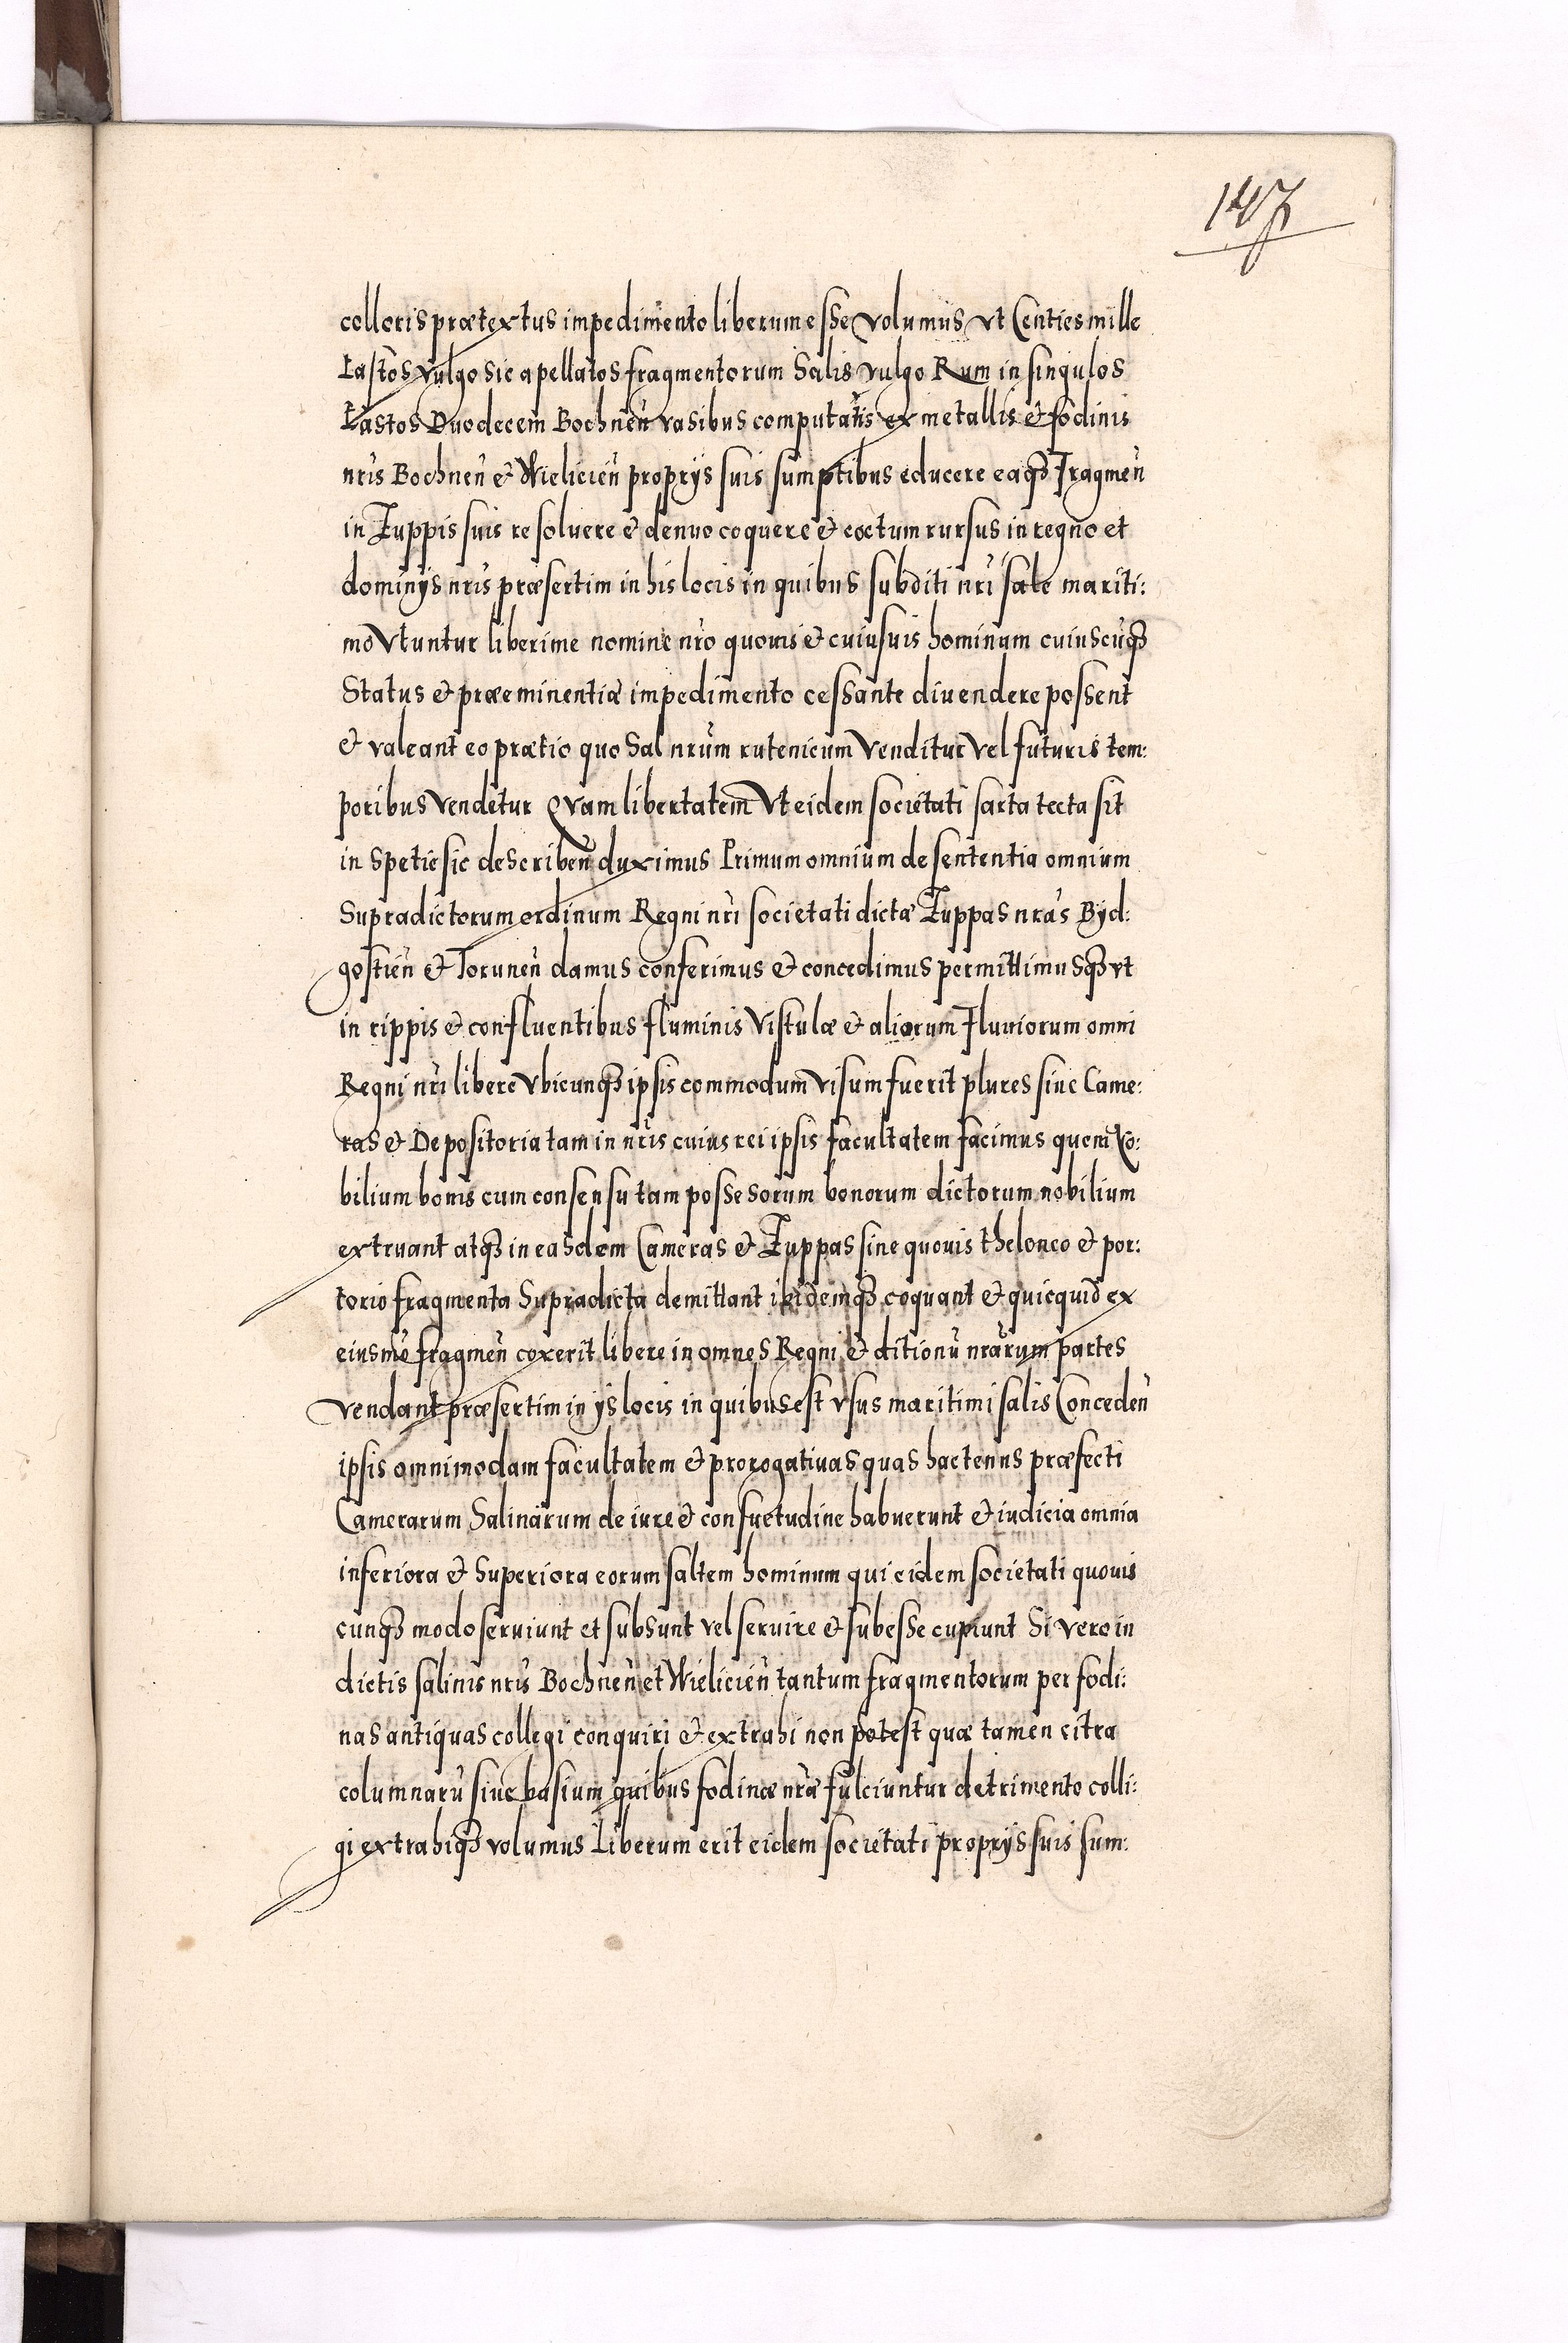 147
colloris prætextus impedimento liberum esse volumus vt Centies mille
Lastos vulgo sic apellatos fragmentorum Salis vulgo Rum in singulos
Lastos Duodecem Bochnen̄ vasibus computatis ex metallis & fodinis
nris Bochnen̄ & Wielicien̄ proprijs suis sumptibus educere eaqȝ Fragmen̄
in Zuppis suis resoluere & denuo coquere & coctum rursus in regno et
dominijs nris præsertim in his locis in quibus subditi nri sale mariti:
mo Vtuntur liberime nomine nro quouis & cuiusuis hominum cuiuscuqȝ
Status & præeminentiæ impedimento cessante diuendere possent
& valeant eo prætio quo Sal nrum rutenicum Venditur Vel futuris tem:
poribus Vendetur Quam libertatem Vt eidem societati sarta tecta sit
in spetie sic describen̄ duximus Primum omnium de sententia omnium
Supradictorum ordinum Regni nri societati dictæ Zuppas nras Byd:
gostien̄ & Torunen̄ damus conferimus & concedimus permittimusqȝ vt
in rippis & confluentibus fluminis Vistulæ & aliorum Fluuiorum omni
Regni nri libere vbicunqȝ ipsis commodum visum fuerit plures siue Came:
ras & Depositoria tam in nris cuius rei ipsis facultatem facimus quem No:
bilium bonis cum consensu tam possesorum bonorum dictorum nobilium
extruant atqȝ in easdem Cameras & Zuppas sine quouis theloneo & por:
torio fragmenta Supradicta demittant ibidemqȝ coquant & quicquid ex
eiusmē fragmen̄ coxerit libere in omnes Regni & ditionū nrarum partes
vendant præsertim in ijs locis in quibus est vsus maritimi salis Conceden̄
ipsis omnimodam facultatem & prorogatiuas quas hactenus præfecti
Camerarum Salinarum de iure & consuetudine habuerunt & iudicia omnia
inferiora & Superiora eorum saltem hominum qui eidem societati quouis
cunqȝ modo seruiunt et subsunt vel seruire & subesse cupiunt Si vero in
dictis salinis nris Bochnen̄ et Wielicien̄ tantum fragmentorum per fodi:
nas antiquas collegi conquiri & extrahi non potest quæ tamen citra
columnarū siue basium quibus fodinæ nræ fulciuntur detrimento colli:
gi extrahiqȝ volumus Liberum erit eidem societati proprijs suis sum: